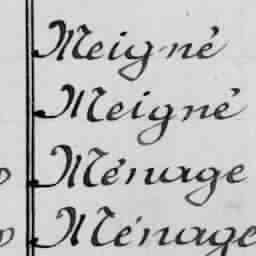 Meigné
Meigné
Ménage
Ménage